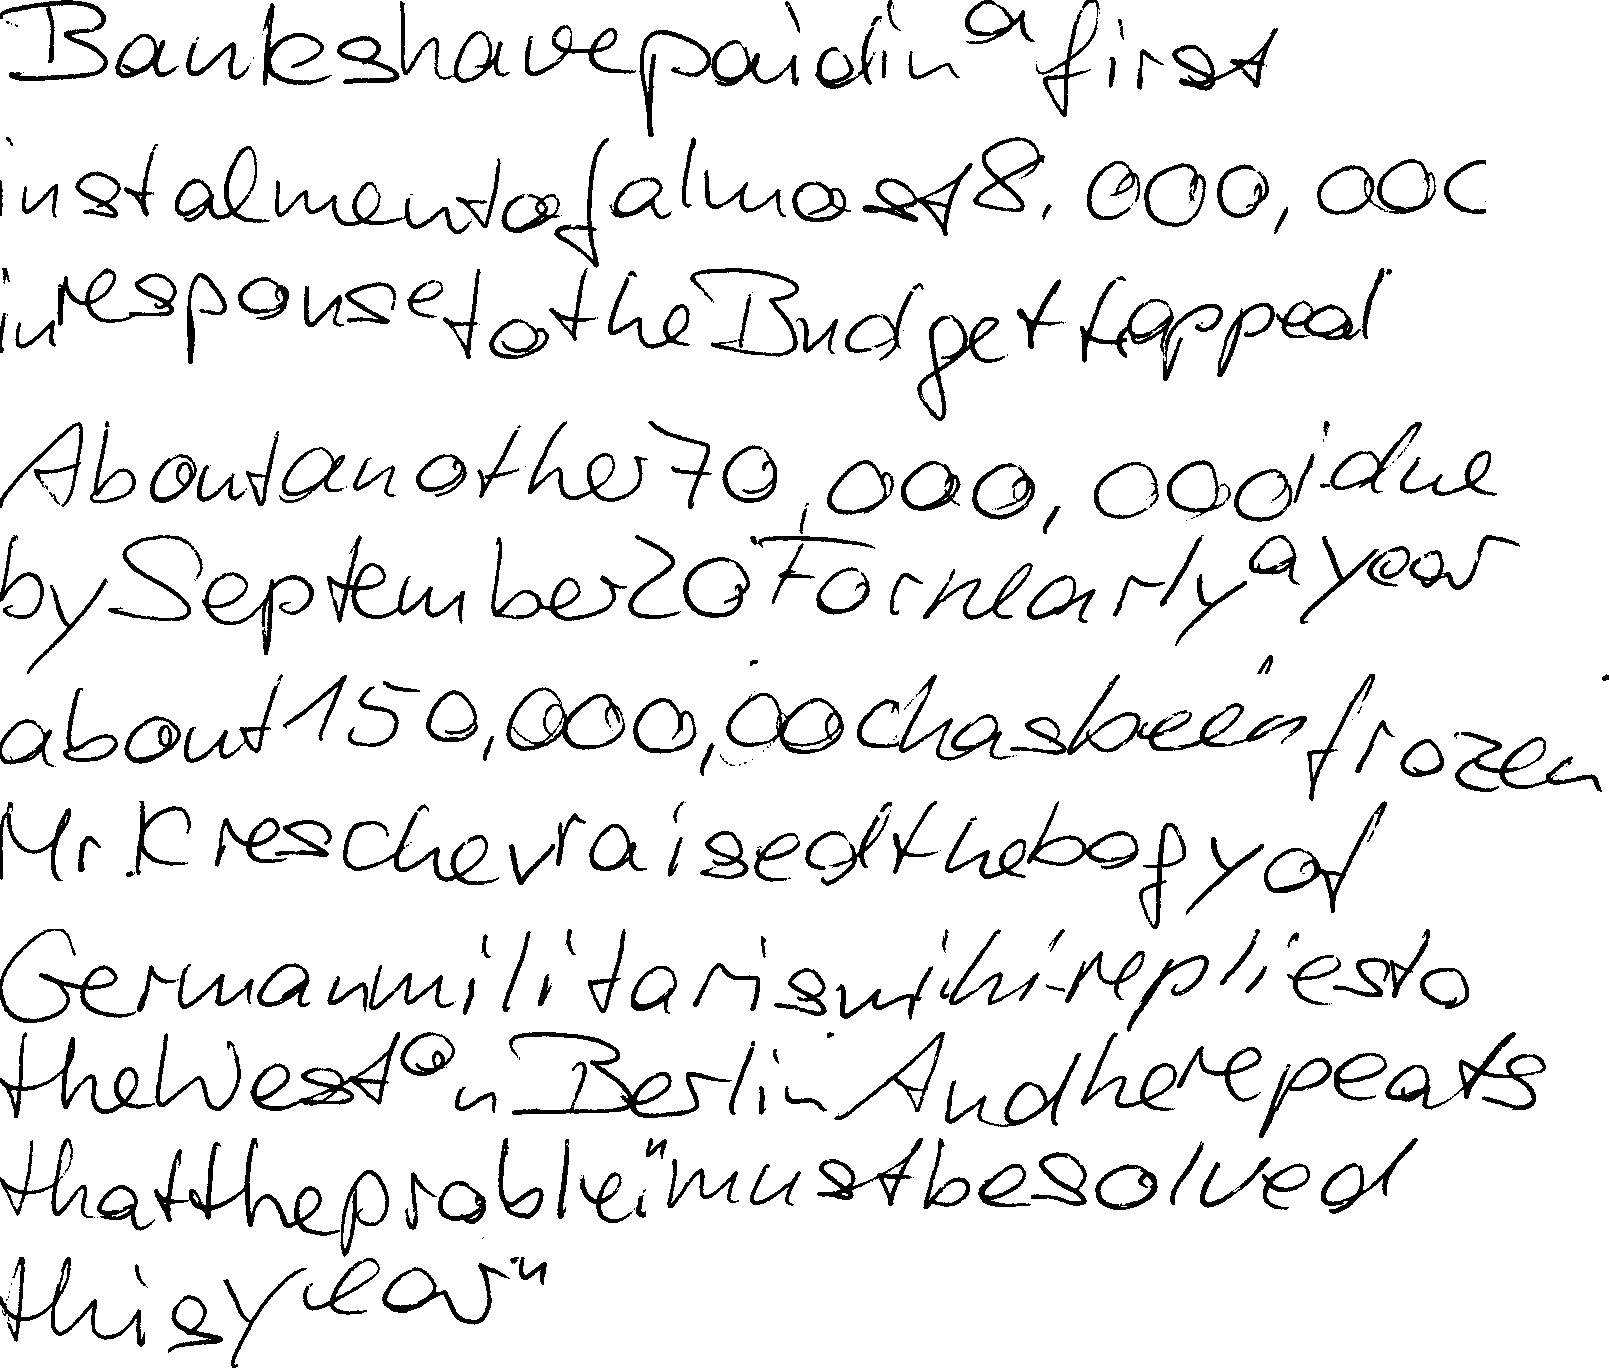 Banks have paid in a first
instalment of almost 8.000,000
in response to the Budget appeal
About another 70,000,000 i due
by September 20 For nearly a year
about 150,000,000 has been frozen
Mr. Kreschev raised the bogy of
German militarism i hi replies to
the West on Berlin And he repeats
that the proble "must be solved
this year"